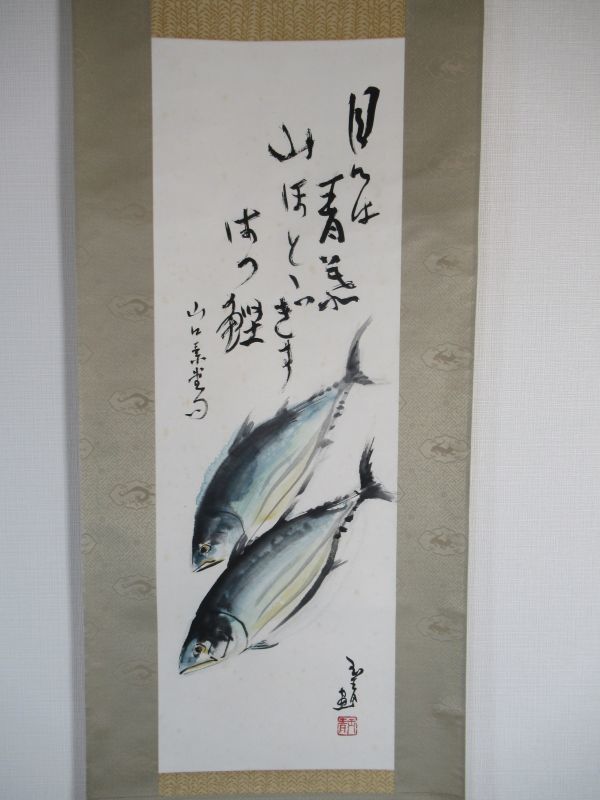 目には青葉
山ほとゝぎす
はつ鰹
山口素堂句